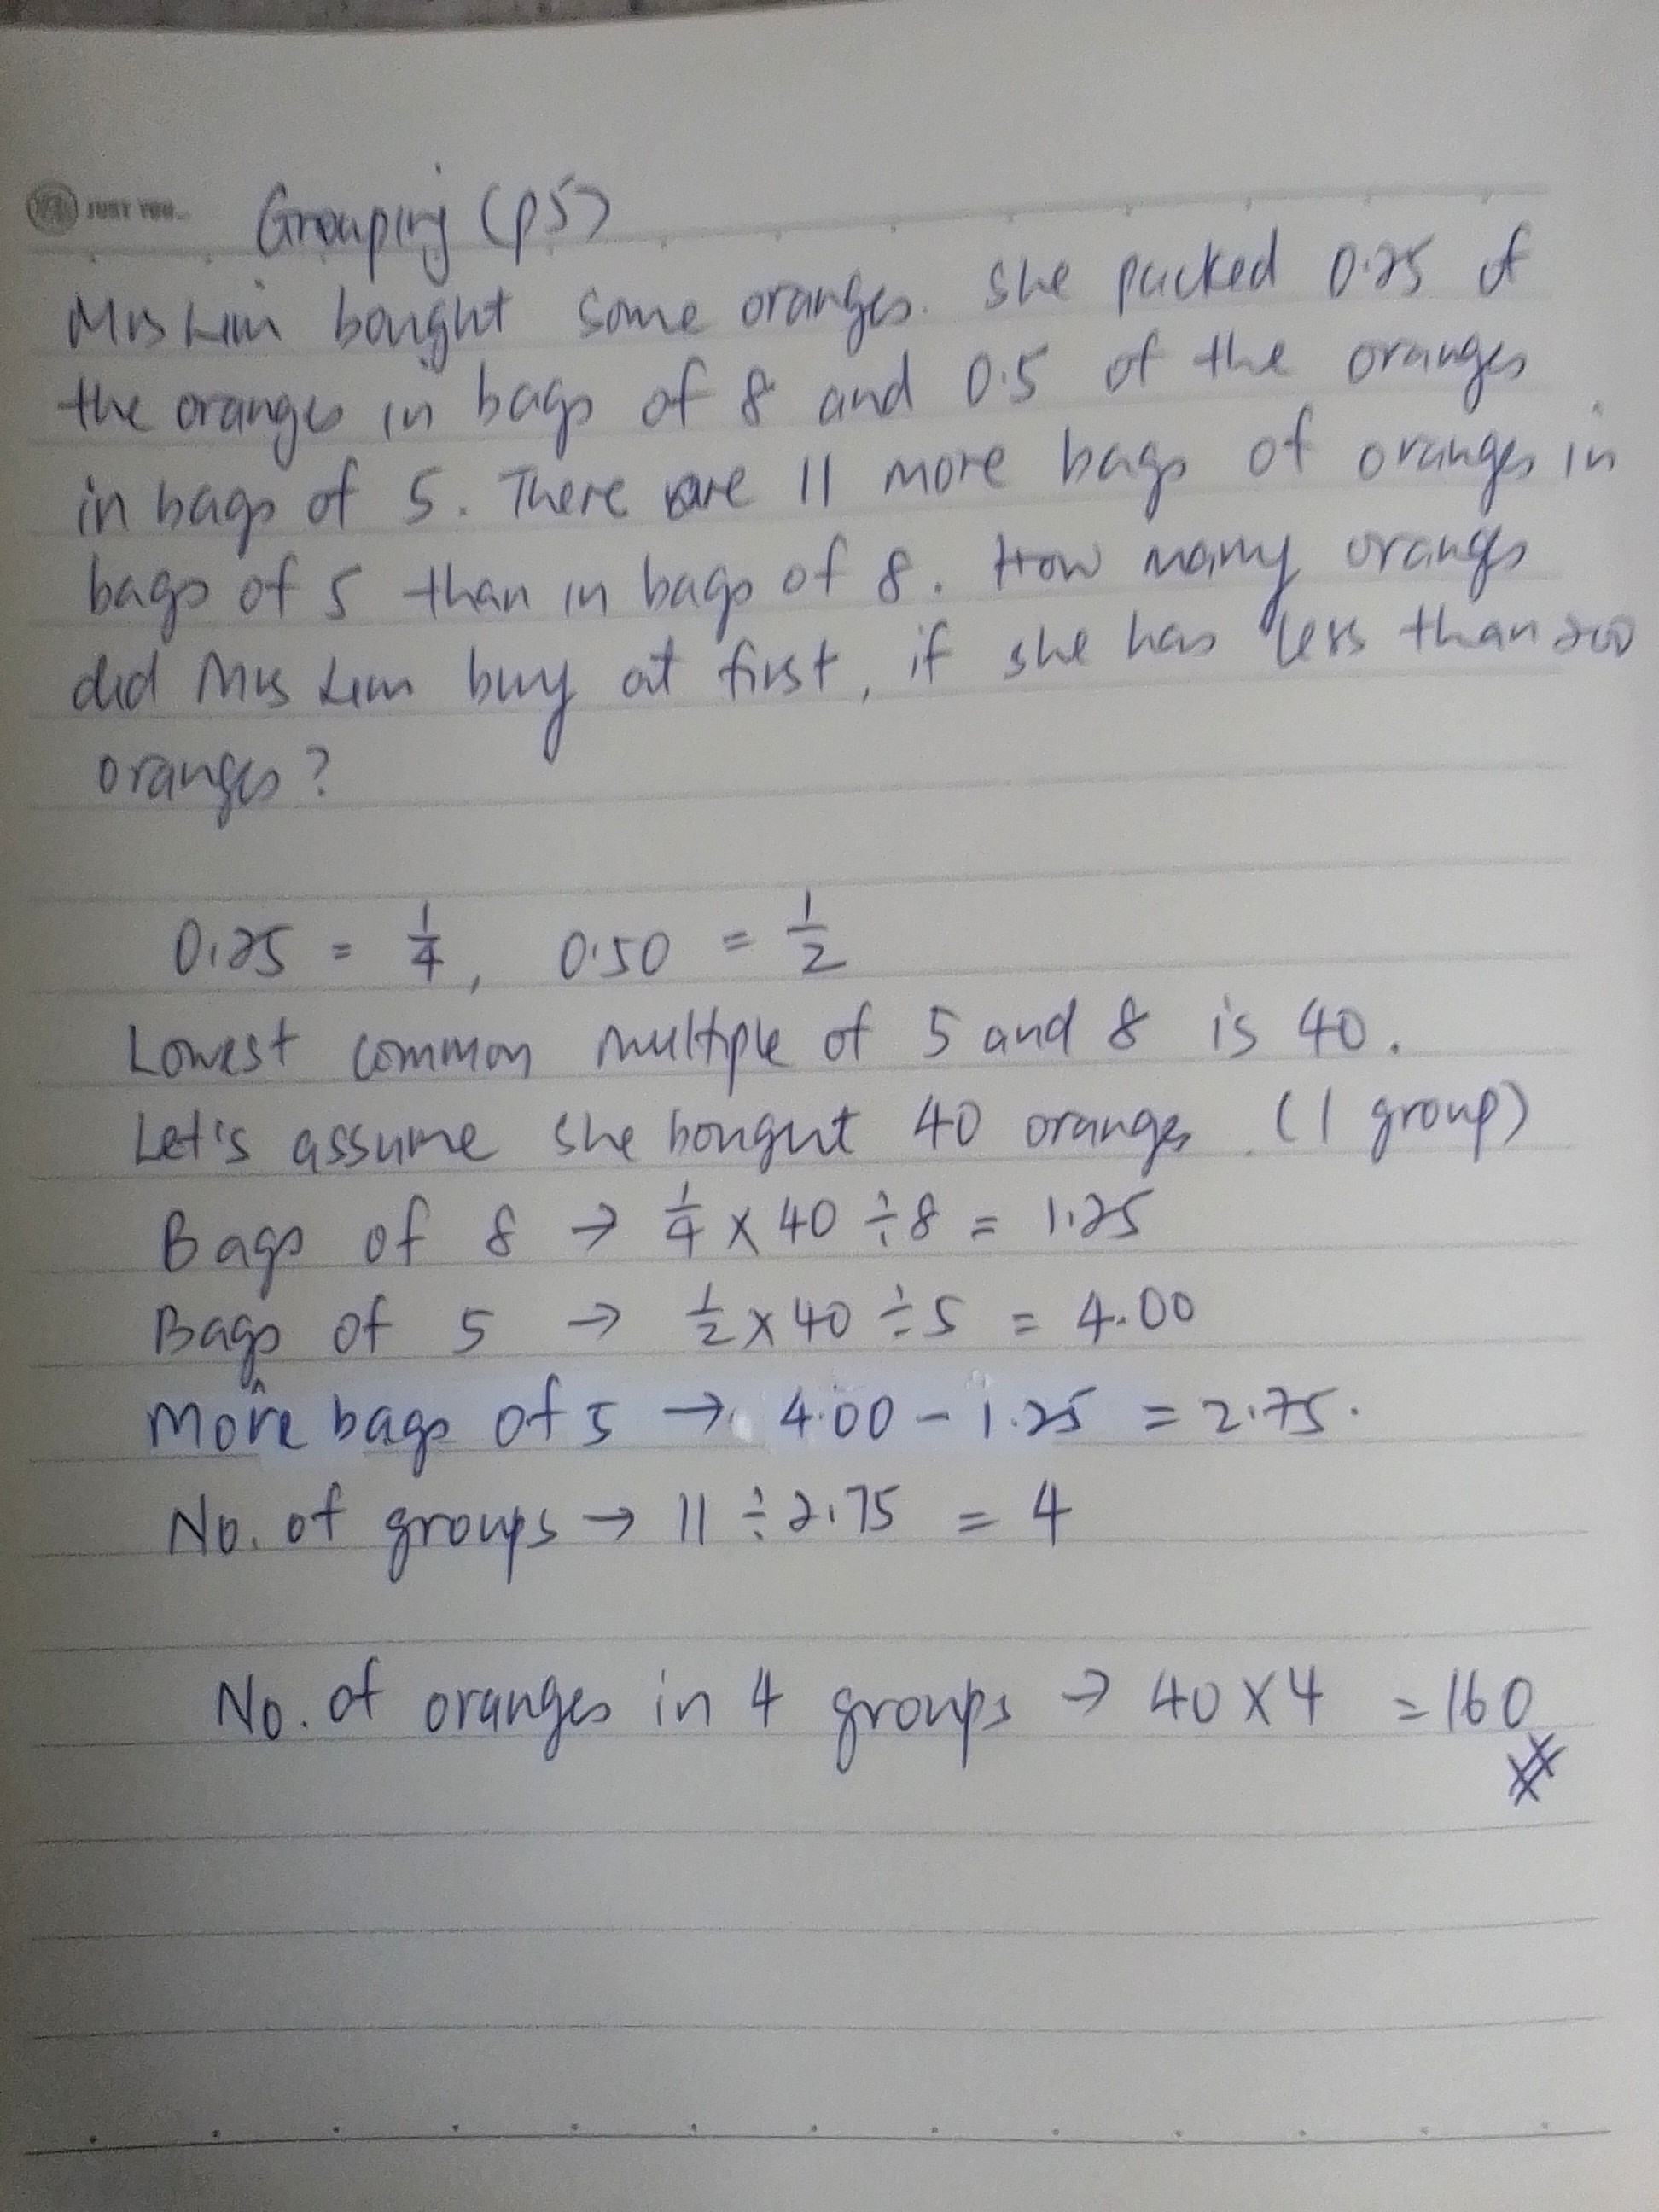 JUST YOU... Grouping (P5)
Mrs Lim bought some oranges. She packed 0.25 of
the oranges in bags of 8 and 0.5 of the oranges
in bags of 5. There are 11 more bags of oranges in
bags of 5 than in bags of 8. How many oranges
did Mrs Lim buy at first, if she has less than 200
oranges?
0.25 = 1/4, 0.50 = 1/2
Lowest common multiple of 5 and 8 is 40.
Let's assume she bought 40 oranges. (1 group)
Bags of 8 → 1/4 × 40 ÷ 8 = 1.25
Bags of 5 → 1/2 × 40 ÷ 5 = 4.00
More bags of 5 → 4.00 - 1.25 = 2.75.
No. of groups → 11 ÷ 2.75 = 4
No. of oranges in 4 groups → 40 × 4 = 160